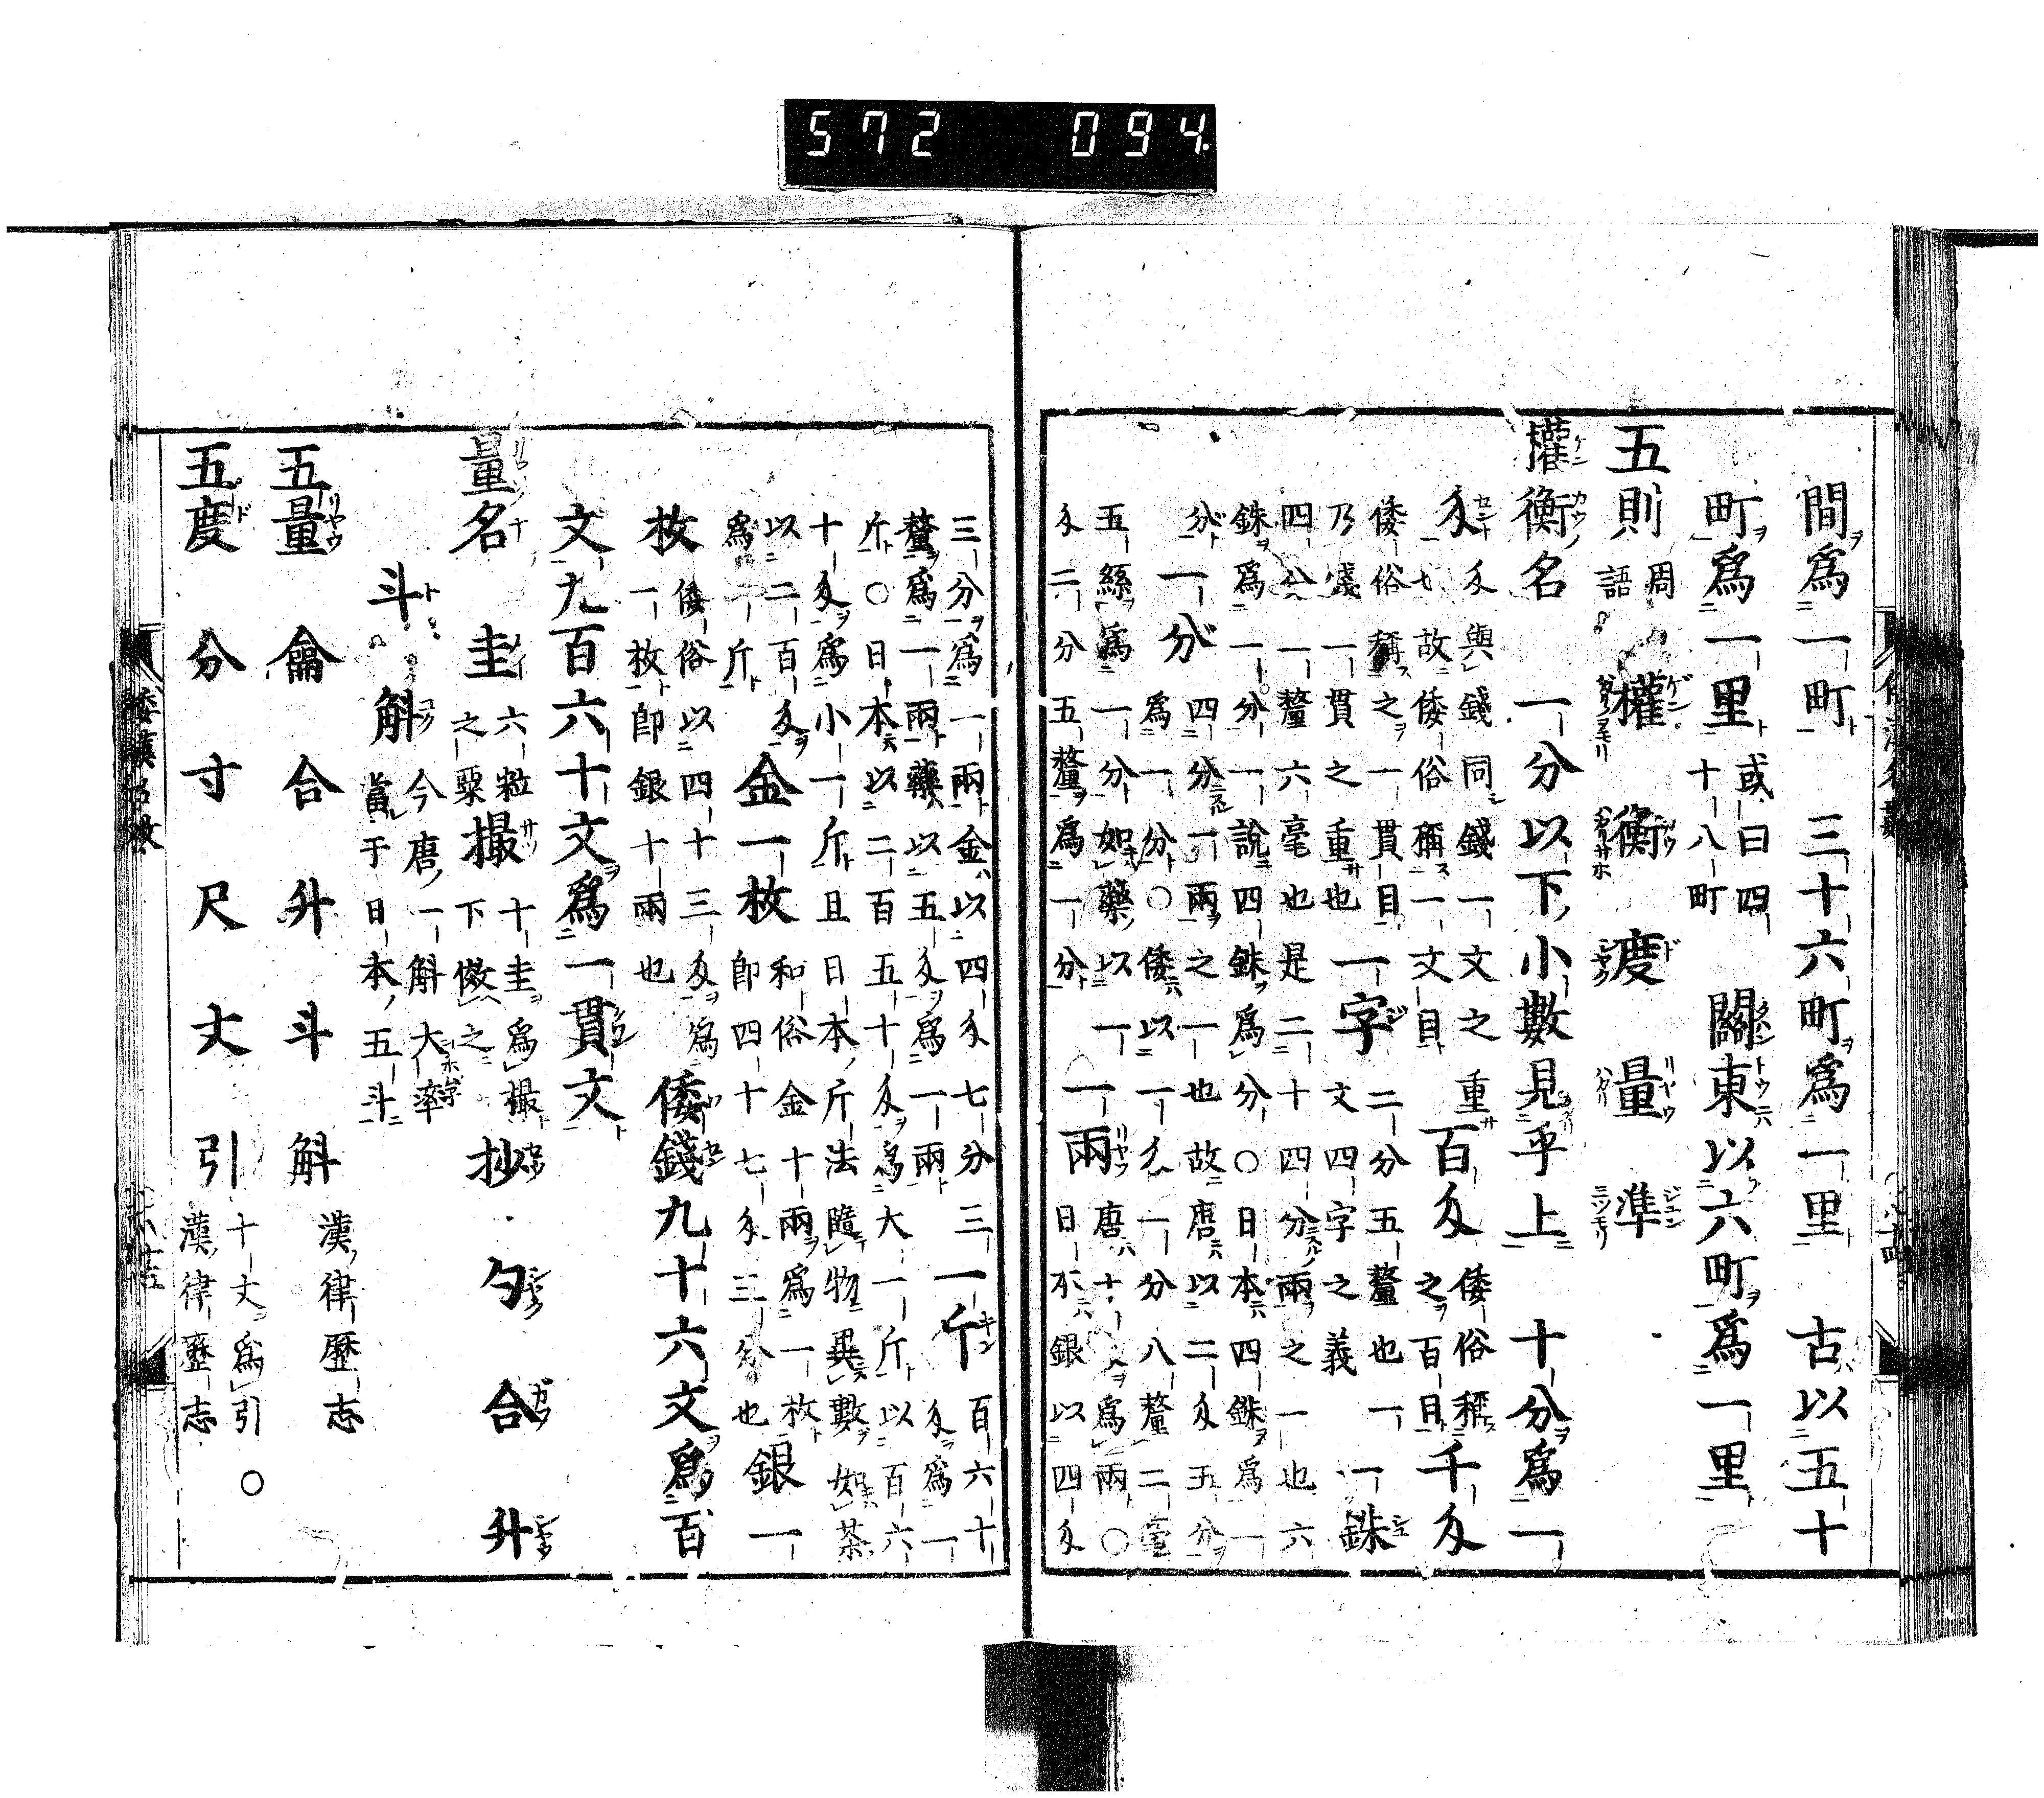 572 094
間爲一町 三十六町爲一里 古以五十
町爲一里 或曰四十八町 關東以六町爲一里
五則 周語 權 衡 度 量 準
權衡名 一分以下小數見乎上 十分爲一
匁 匁與錢同錢一文之重
也故倭俗稱一文目 百匁 倭俗稱
之百目 千匁
倭俗稱之一貫目
乃錢一貫之重也 一字 二分五釐也一
文四字之義 一銖
四分一釐六毫也是二十四分兩之一也六
銖爲一分一說四銖爲分〇日本四銖爲一
分 一分 四分一兩之一也故唐以二匁五分
爲一分〇倭以一匁一分八釐二毫
五絲爲一分如藥以一 一兩 唐十匁爲兩〇
匁二分五釐爲一分 日本銀以四匁
三分爲一兩金以四匁七分三
釐爲一兩藥以五匁爲一兩 一斤 百六十
匁爲一
斤〇日本以二百五十匁爲大一斤以百六
十匁爲小一斤且日本斤法隨物異數如茶
以二百匁
爲一斤 金一枚 和俗金十兩爲一枚
即四十七匁三分也 銀一
枚 倭俗以四十三匁爲
一枚即銀十兩也 倭錢九十六文爲百
文九百六十文爲一貫文
量名 圭 六粒
之粟 撮 十圭爲撮
下倣之 抄 勺 合 升
斗 斛 今唐一斛大率
當于日本五斗
五量 龠 合 升 斗 斛 漢律歷志
五度 分 寸 尺 丈 引 十丈爲引 〇
漢律歷志
倭漢名數